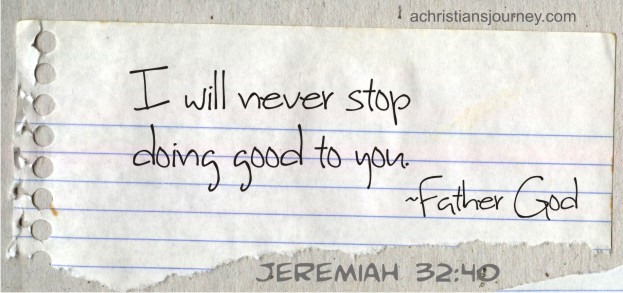 achristiansjourney.com
I will never stop
doing good to you.
~Father God
JEREMIAH 32:40